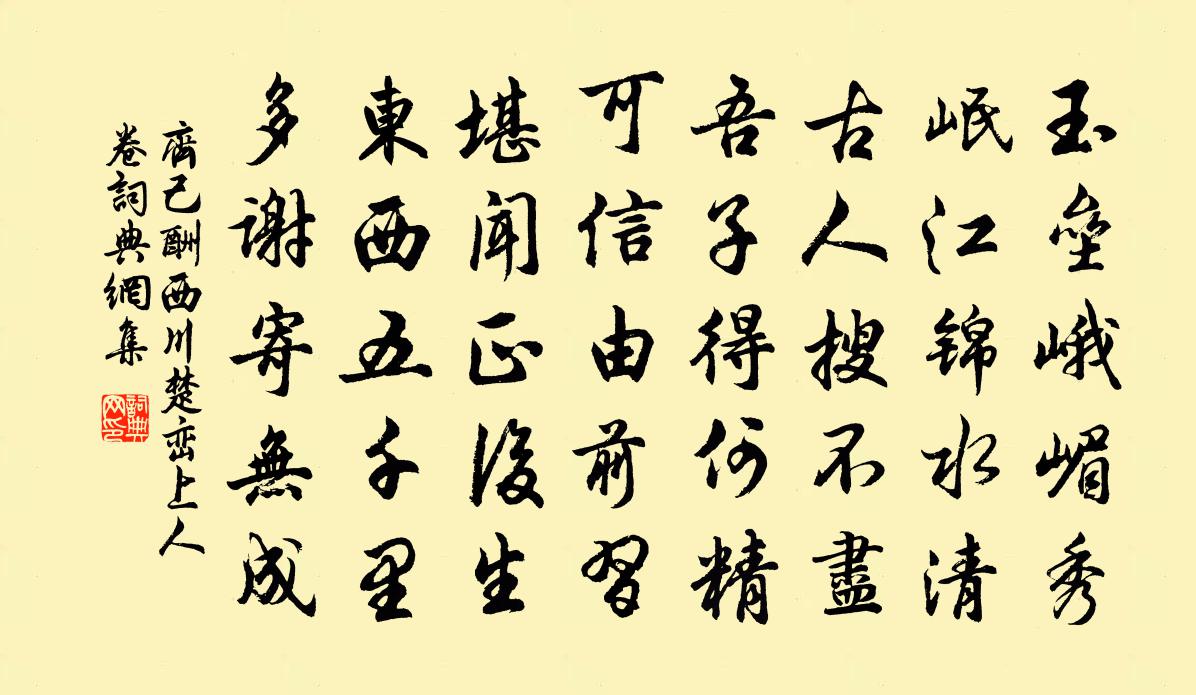 玉壘峨嵋秀
岷江锦水清
古人搜不盡
吾子得何精
可信由前習
堪聞正後生
東西五千里
多謝寄無成
齊己酬西川楚峦上人
卷詞典網集
詞典網印